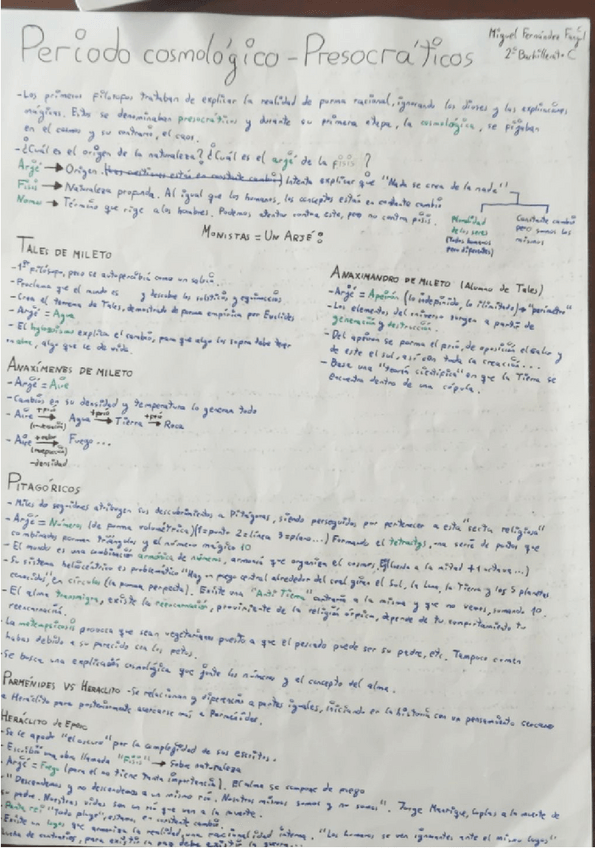 Miguel Fernández
2º Bachillerato C
Período cosmológico - Presocráticos
- Los primeros filósofos trataban de explicar la realidad de forma racional, ignorando los dioses y las explicaciones
mágicas. Estos se denominaban presocráticos y durante su primera etapa, la cosmológica, se fijaban
en el cosmos y su contrario, el caos.
- ¿Cuál es el origen de la naturaleza? ¿Cuál es el argé de la fisis?
Argé → Origen. Intenta explicar que "Nada se crea de la nada"
Fisis → Naturaleza profunda. Al igual que los humanos, los conceptos están en constante cambio
Nomos → Término que rige a los hombres. Podemos atentar contra este, pero no contra fisis.
Pluralidad
de los seres
(todos humanos
pero diferentes)
Constante cambio
pero somos los
mismos
Monistas = Un Argé:
Tales de Mileto
- 1º filósofo, pero se autopercibía como un sabio.
- Proclama que el mundo es y describe los solsticios y equinoccios
- Crea el teorema de Tales, demostrado de forma empírica por Euclides
- Argé = Agua
- El hylozoismo explica el cambio, para que algo lo sufra debe tener
alma, algo que le de vida.
Anaximandro de Mileto (Alumno de Tales)
- Argé = Apeirón (lo indefinido, lo ilimitado) →
- Los elementos del universo surgen a partir de
generación y destrucción.
- Del apeiron se forma el frío, de oposición el calor y
de este el sol, así con toda la creación...
- Basa una "teoría científica" en que la Tierra se
encuentra dentro de una cúpula.
Anaxímenes de Mileto
- Argé = Aire
- Cambios en su densidad y temperatura lo generan todo
- Aire → +frío Agua → +frío Tierra → +frío Roca
- Aire → +calor Fuego...
-densidad
Pitagóricos
- Miles de seguidores atribuyen sus descubrimientos a Pitágoras, siendo perseguidos por pertenecer a esta "secta religiosa"
- Argé = Números (de forma volumétrica)(1=punto 2=línea 3=plano...) Formando el tetractys, una serie de puntos que
combinados forman triángulos y el número mágico 10
- El mundo es una combinación armónica de números, armonía que organiza el cosmos. a la mitad + 1 octava...)
- Su sistema heliocéntrico es problemático "Hay un fuego central alrededor del cual giran el Sol, la Luna, la Tierra y los 5 planetas
en círculos (la forma perfecta). Existe una "Anti Tierra" contraria a la misma y que no vemos, sumando 10.
- El alma transmigra, existe la reencarnación, proviniente de la religión órfica, depende de tu comportamiento tu
reencarnación.
- La metempsicosis provoca que sean vegetarianos puesto a que el pescado puede ser su padre, etc. Tampoco comen
habas debido a su parecido con los fetos.
- Se busca una explicación cosmológica que junte los números y el concepto del alma.
Parménides vs Heráclito - Se relacionan y diferencian a partes iguales, iniciando en la historia con un pensamiento cercano
a Heráclito para posteriormente acercarse más a Parménides.
Heráclito de Efeso
- Se le apodó "el oscuro" por la complejidad de sus escritos.
- Escribió una obra llamada "Fisis" → Sobre naturaleza
- Argé = Fuego (para él no tiene tanta importancia). El alma se compone de fuego
- "Descendemos y no descendemos a un mismo río. Nosotros mismos somos y no somos". Jorge Manrique, Coplas a la muerte de
su padre. Nuestras vidas son un río que van a la muerte.
- Panta rei "todo fluye", estamos en constante cambio
- Existe un logos que armoniza la realidad, una racionalidad interna. "Los hombres se ven ignorantes ante el mismo logos"
lucha de contrarios, para existir la paz debe existir la guerra...